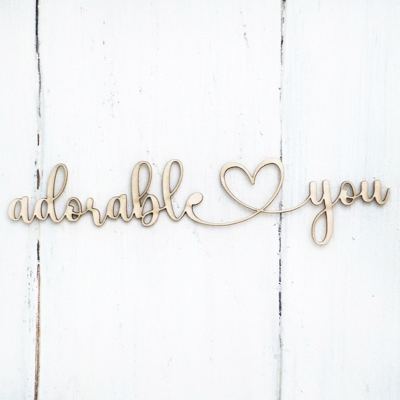 adorable you